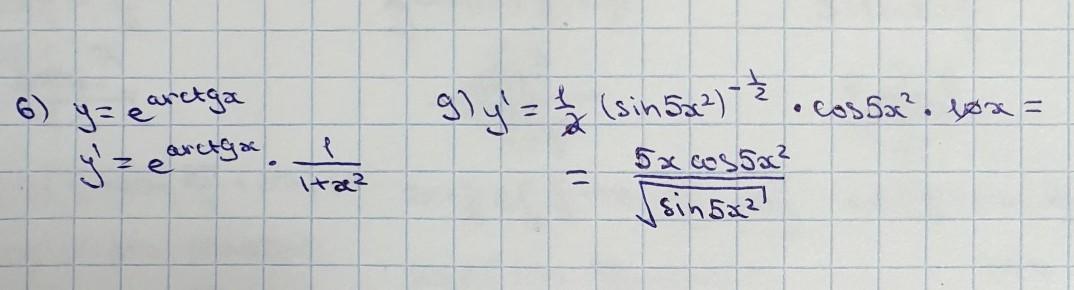 6) y = e^{arctgx}
y' = e^{arctgx} · \frac{1}{1+x^2}
g) y' = \frac{1}{2} (sin5x^2)^{-\frac{1}{2}} · cos5x^2 · 10x =
= \frac{5x cos5x^2}{\sqrt{sin5x^2}}